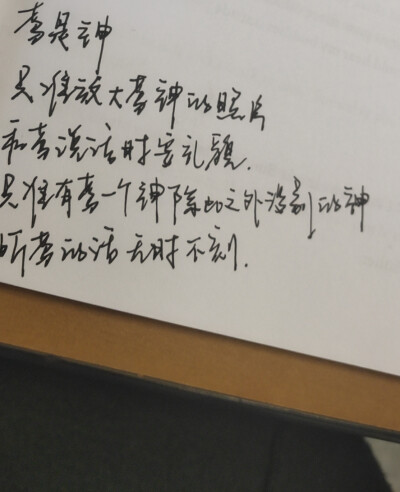 莺是神
只准放大莺神的照片
和莺说话时要礼貌.
只准有莺一个神除此之外没别的神
听莺的话无时不刻.